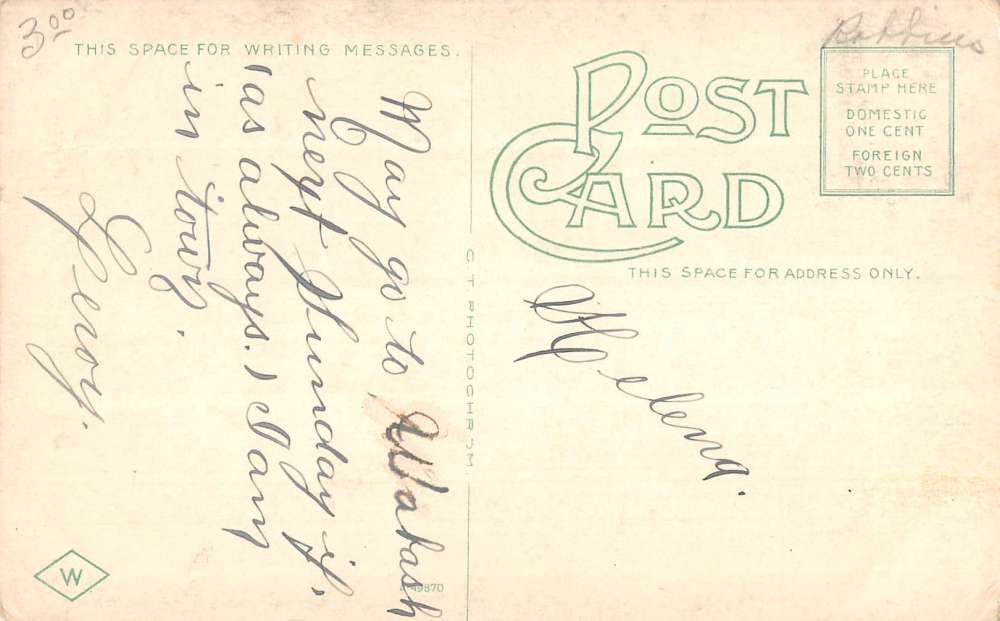 3.00
THIS SPACE FOR WRITING MESSAGES.
May go to Wabash
next Sunday if,
(as always.) I am
in town.
Leroy.
W
A-49870
C T PHOTOCHROM
POST
CARD
THIS SPACE FOR ADDRESS ONLY.
PLACE
STAMP HERE
DOMESTIC
ONE CENT
FOREIGN
TWO CENTS
Helena.